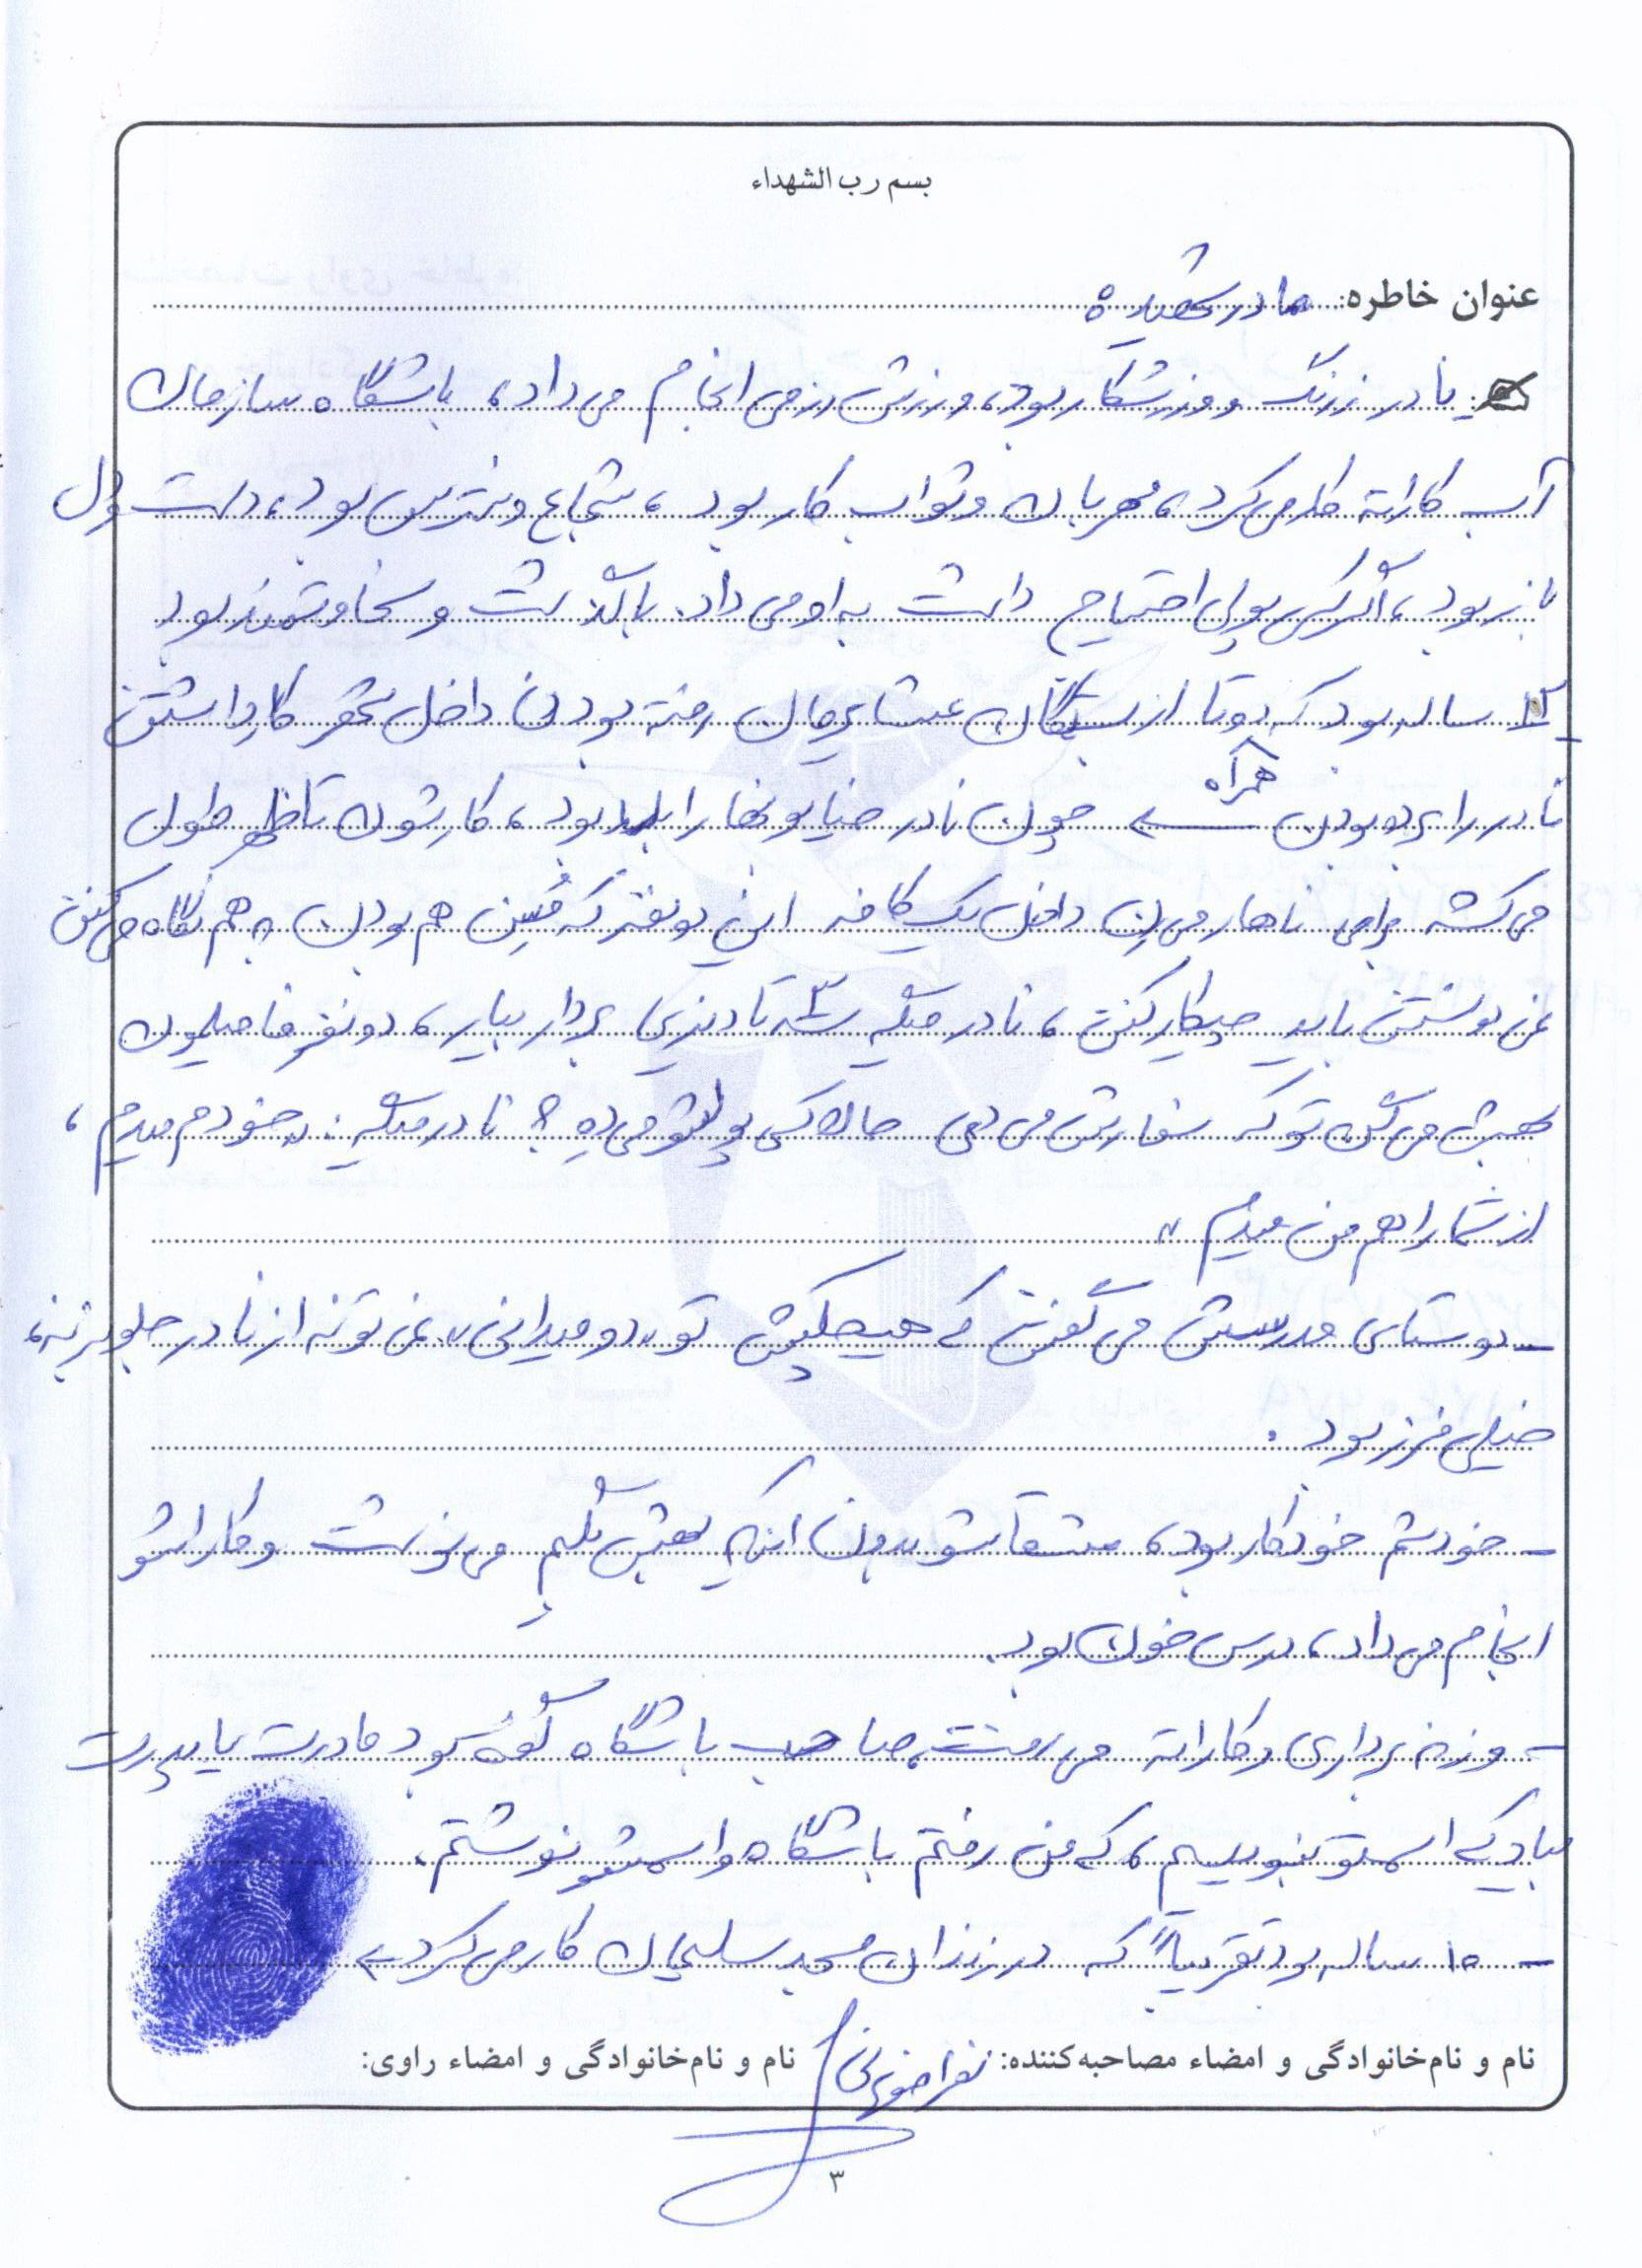 بسم رب الشهداء
عنوان خاطره: مادر شهید
نادر زرنگ و ورزشکار بود، ورزش رزمی انجام می داد، باشگاه سازمان
آب کاراته کار می کرد، مهربان و ثواب کار بود، شجاع و نترس بود، دست و دل
باز بود، اگر کسی پولی احتیاج داشت به او می داد. با گذشت و سخاوتمند بود
۱۲ ساله بود که دوتا از بستگان عشایرمان رفته بودن داخل شهر کار داشتن
نادر را برده بودن همراه چون نادر خیابونها را بلد بود، کارشون تا ظهر طول
می کشه برای ناهار می رن داخل یک کافه این دو نفر که مُسِن هم بودن به هم نگاه می کنن
نمی دونستن باید چیکار کنن، نادر میگه سه تا دیزی بردار بیار، دو نفر فامیلمون
بهش می گن تو که سفارش می دی حالا کی پولشو می دهِ؟ نادر میگه: "خودم میدم،
از شما را هم من میدم"
- دوستای مدرسش می گفتن که هیچکس تو "دو میدانی" نمی تونه از نادر جلو بزنه،
خیلی فرز بود.
- خودشم خودکار بود، مشقاشو بدون اینکه بهش بگیم می نوشت و کاراشو
انجام می داد، درس خون بود.
- وزنه برداری و کاراته می رفت، صاحب باشگاه گفته بود مادرت یا پدرت
بیاد که اسمتو بنویسیم، که من رفتم باشگاه و اسمشو نوشتم.
- ۱۵ ساله بود تقریباً که در زندان مسجد سلیمان کار می کرد
نام و نام‌خانوادگی و امضاء مصاحبه‌کننده: نام و نام‌خانوادگی و امضاء راوی:
۳